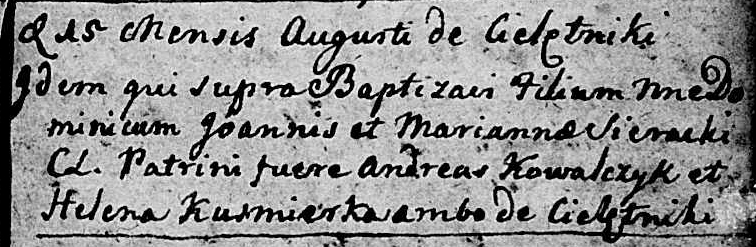 d 15 Mensis Augusti de Cielętniki
Idem qui supra Baptizavi Filium nne Do
minicum Joannis et Mariannæ Sieracki
CL. Patrini fuere Andreas Kowalczyk et
Helena Kusmierka ambo de Cielętniki